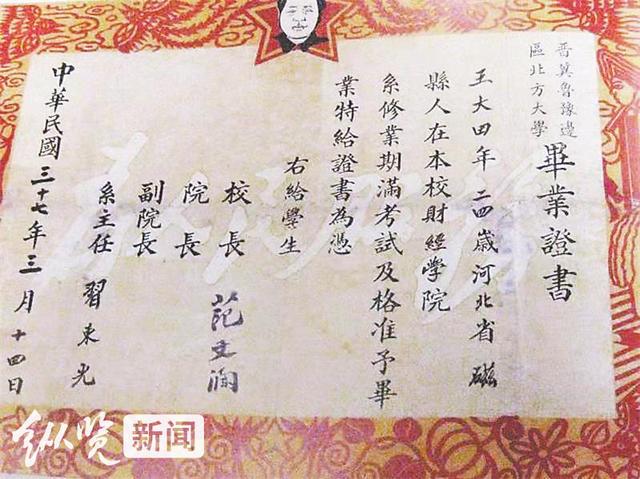 晋冀魯豫邊
區北方大學
畢業證書
王大四年二四歲河北省磁
縣人在本校財經學院
系修業期滿考試及格准予畢
業特給證書為憑
右給學生
校長 范文瀾
院長
副院長
系主任 習東光
中華民國三十七年三月十四日
纵览新闻